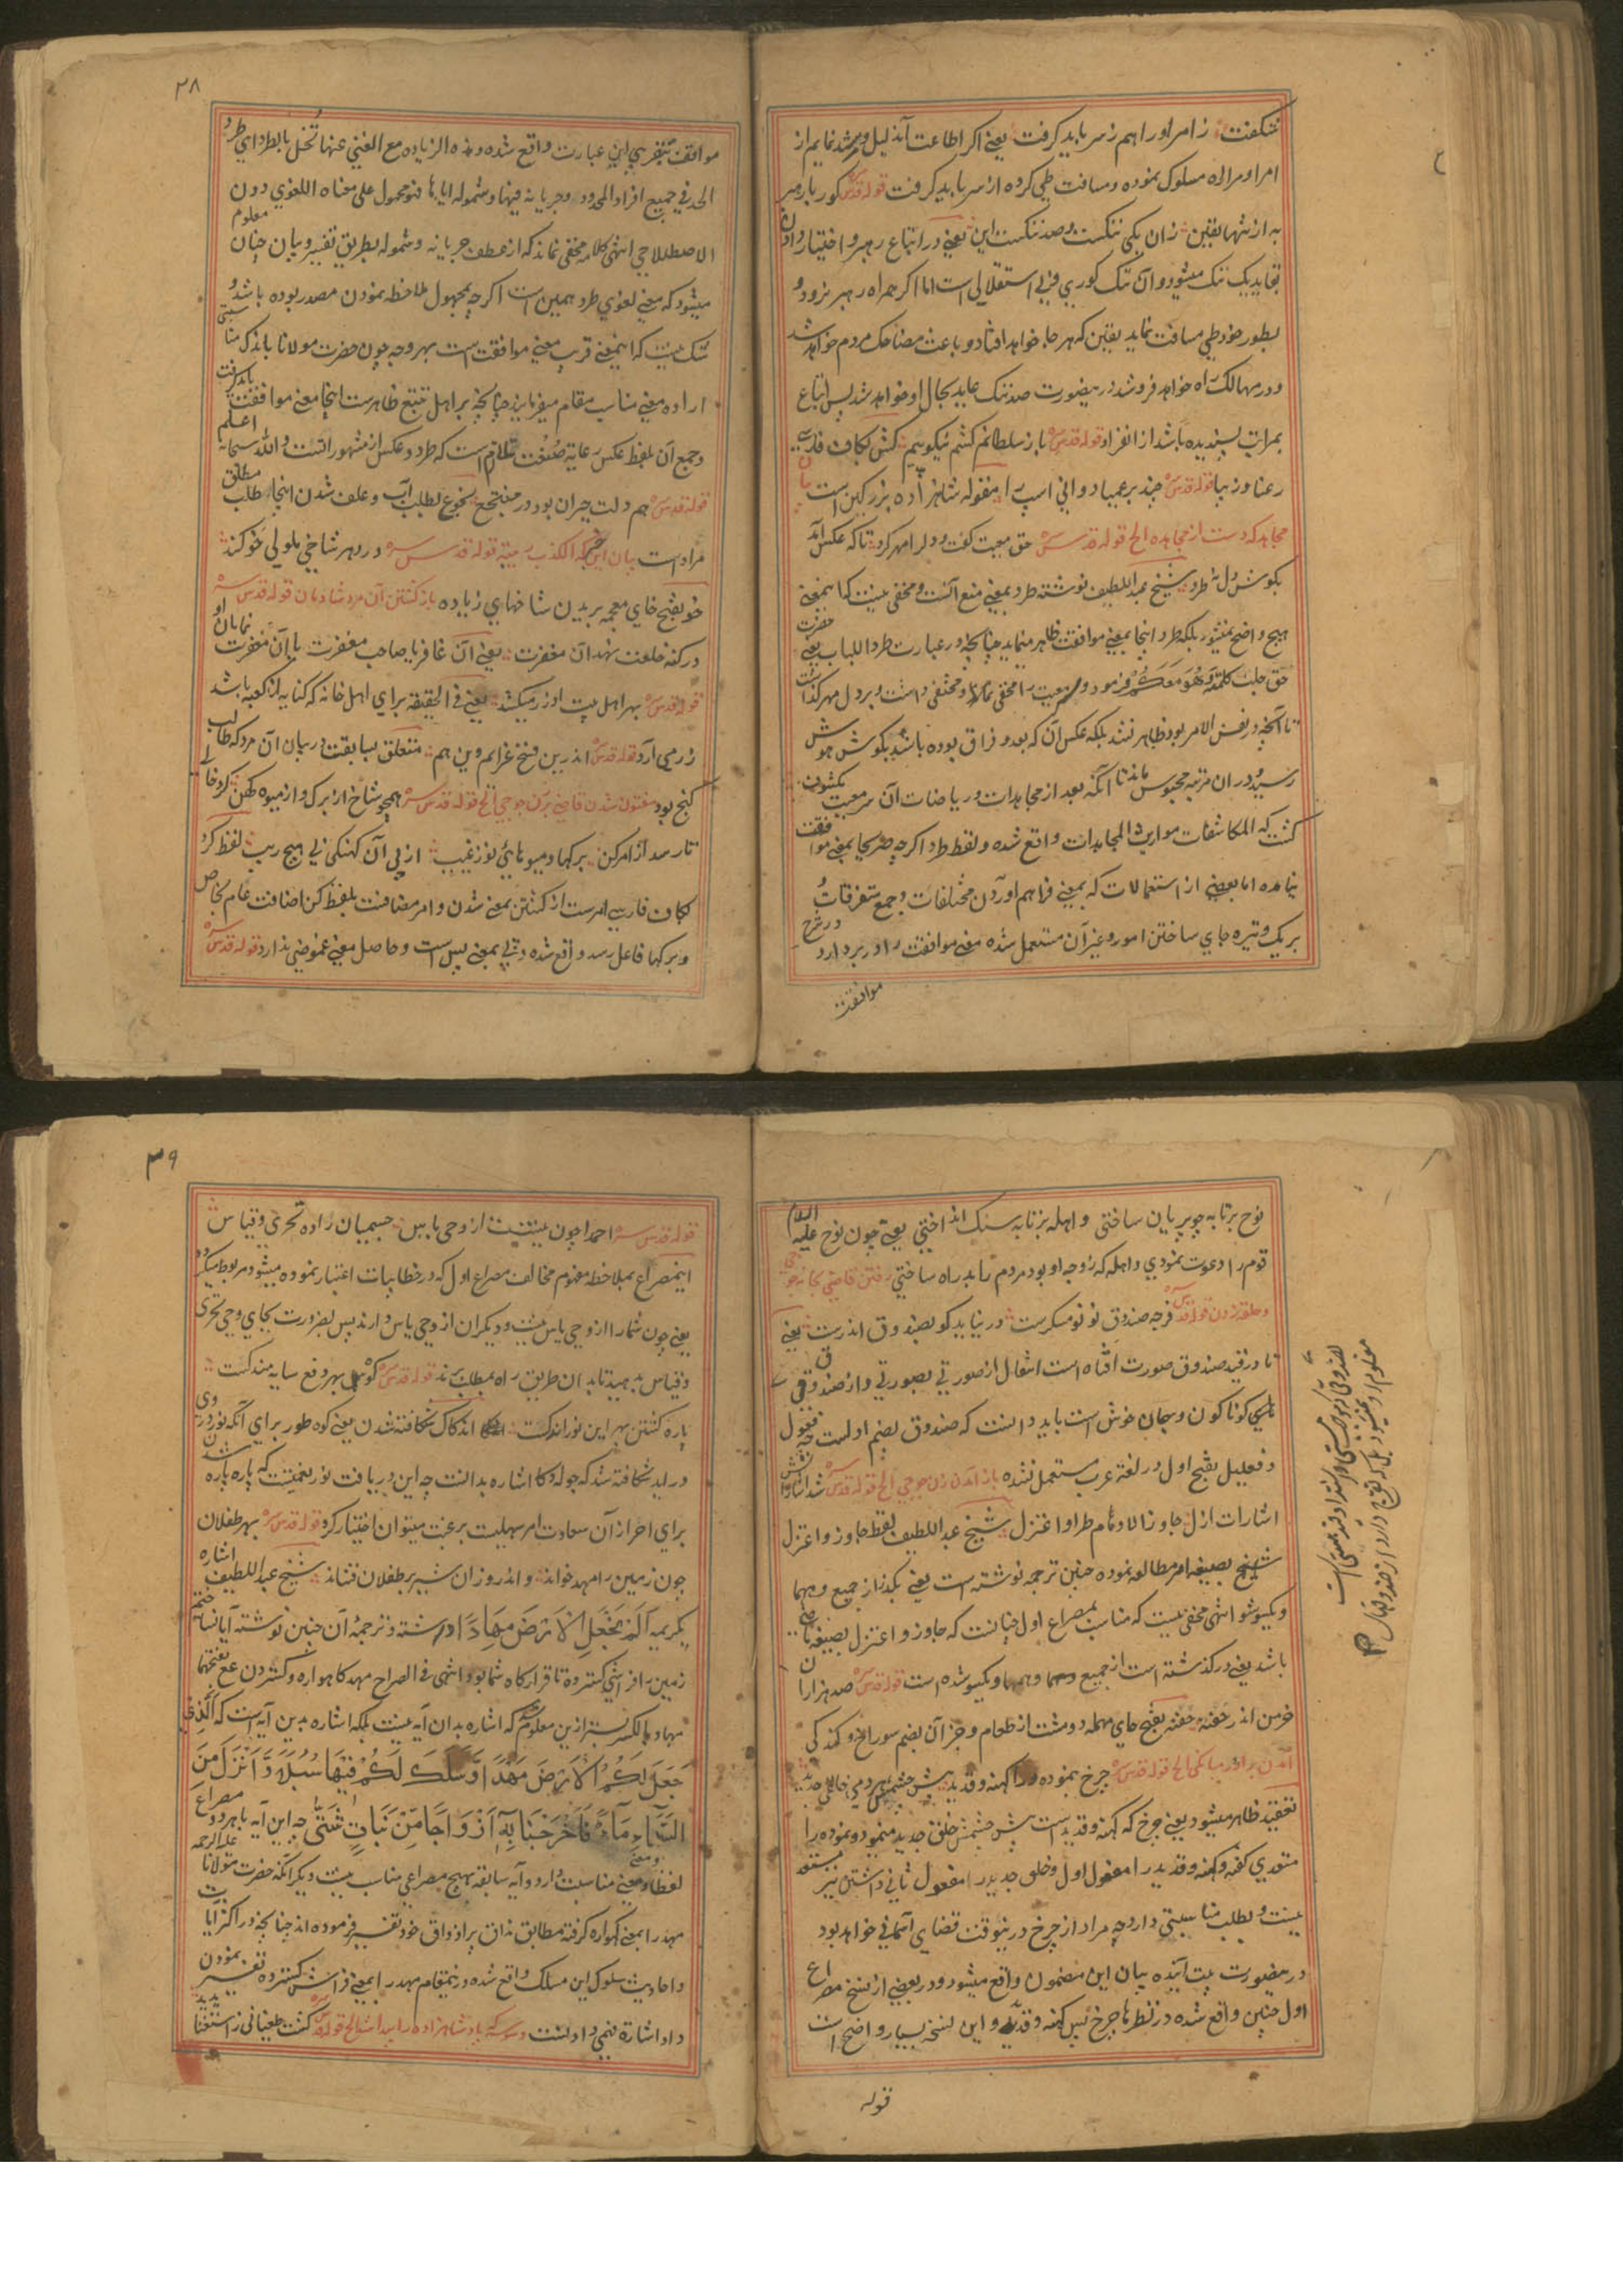 شکفت ز امر او را هم ز سر باید گرفت یعنی اگر اطاعت آن ذلیل و مرشد نمایم از
امر او مر اراده مسلوک نموده و مسافت طی کرده از سر باید گرفت قوله قدس سره کور با رهبر
به از تنها یقین زان یکی ننگست و صد ننگست این یعنی در اتباع رهبر و اختیار دادن
بقاید یک ننگ میشود و آن ننگ کوری و بی استقلالی است اما اگر همراه رهبر نرود و
بطور خود طی مسافت نماید یقین که هر جا خواهد افتاد و باعث مضاحک مردم خواهد شد
و در مهالک راه خواهد فرو شد درینصورت صد ننگ عاید بحال او خواهد شد پس اتباع
بمراتب پسندیده باشد از انفراد قوله قدس سره باز سلطانم کشم نیکو پیم کش بکاف فارسی
رعنا و زیبا قوله قدس سره چند بر عمیا دوانی اسپ را مقوله شاهزاده بزرگین است
مجاهد که دست از مجاهده الخ قوله قدس سره حق معیت گفت و دل را مهر کرد تا که عکس آید
بگوش دل نه طرد شیخ عبد اللطیف نوشته طرد بمعنی منع آنست و مخفی نیست که اینمعنی
هیچ واضح نمیشود بلکه طرد اینجا بمعنی موافقت ظاهر مینماید چنانچه در عبارت طردا للباب یعنی حضرت
حق جلت کلمته وَهُوَ مَعَكُمْ فرمود و معیت را مخفی نمود و مختفی داشت و بر دل مهر گذاشت
تا آنچه در نفس الامر بود ظاهر نشد بلکه عکس آن که بعد و فراق بوده باشد بگوش هوش
رسید و در ان مرتبه محبوس ماند تا آنکه بعد از مجاهدات و ریاضات آن سر معیت مکشوف
گشت که المکاشفات مواریث المجاهدات واقع شده و لفظ طرد اگر چه صریحا بمعنی موافقت
نیامده اما بعضی از استعمالات که بمعنی فراهم آوردن مختلفات و جمع متفرقات و
بر یک وتیره جای ساختن امور و غیر آن مستعمل شده معنی موافقت را در بر دارد در شرح
موافقت
۳۸
موافقت بتقریبی این عبارت واقع شده و هذه الزیاده مع الغنی عنها تخل بالطرد ای طرد
الحد فی جمیع افراد المحدود و جریانه فیها و شموله ایاها فهو محمول علی معناه اللغوی دون
الاصطلاحی انتهی کلامه مخفی نماند که از عطف جریانه و شموله بطریق تفسیر و بیان چنان معلوم
میشود که معنی لغوی طرد همین است اگر چه مجهول ملاحظه نمودن مصدر بوده باشد و
شک نیست که اینمعنی قریب معنی موافقت است بهر وجه چون حضرت مولانا باندک مناسبتی
اراده معنی مناسب مقام میفرمایند چنانچه بر اهل تتبع ظاهرست اینجا معنی موافقت باید گرفت
و جمع آن بلفظ عکس رعایة صنعت تلازم است که طرد و عکس از مشهوراتست والله سبحانه اعلم
قوله قدس سره هم دلت حیران بود در منتجع نجوع بطلب آب و علف شدن اینجا مطلق طلب
مراد است بیان این خبر که الکذب ریبة قوله قدس سره در دهر شاخی ملولی خو کند
خو بفتح خای معجمه بریدن شاخهای زیاده باز گشتن آن مرد شادمان قوله قدس سره
در کنه خلعت نهد آن مغفرت یعنی آن غافر یا صاحب مغفرت یا آن مغفرت نمایان او
قوله قدس سره بهر اهل بیت او زر میکشد یعنی فی الحقیقه برای اهل خانه که کنایه از کعبه باشد
زر می آرد قوله قدس سره اندرین فسخ عزائم وین همم متعلق بسابقت در بیان آن مرد که طالب
گنج بود مفتون شدن قاضی بر زن جوحی الخ قوله قدس سره همچو شاخ از برگ و از میوه کهن کرد خالی
تا رسد از امر کن برگها و میوهای نو ز غیب از پی آن کهنگی بی هیچ ریب لفظ کرد
بکاف فارسی امرست از گشتن بمعنی شدن و امر مضافست بلفظ کن اضافت عام بخاص
و برگها فاعل رسد واقع شده و پی بمعنی پس است و حاصل معنی غموضی ندارد قوله قدس سره
نوح بر تابه چو بریان ساختی واهله بر تابه سنگ انداختی یعنی چون نوح علیه السلام
قوم را دعوت نمودی واهله که زوجه او بود مردم را بد راه ساختی رفتن قاضی بخانه جوحی
و حلقه زدن قوله قدس سره فرجه صندوق نو نو مسکرست در نیابد کو بصندوق اندرست یعنی
تا در قید صندوق صورت افتاده است انتقال از صورتی بصورتی و از صندوقی
بصندوقی گوناگون و بجان خوش است باید دانست که صندوق بضم اولست چه فعلول
و فعلیل بفتح اول در لغة عرب مستعمل نشده باز آمدن زن جوحی الخ قوله قدس سره شد اشاراتش
اشارات ازل جاوز الاوهام طرا و اعتزل شیخ عبد اللطیف لفظ جاوز و اعتزل
بصیغه امر مطالعه نموده چنین ترجمه نوشته است یعنی بگذر از جمیع وهمها
و یکسو شو انتهی مخفی نیست که مناسب بمصراع اول چنانست که جاوز و اعتزل بصیغه ماضی
باشد یعنی در گذشته است از جمیع وهمها و یکسو شده است قوله قدس سره صد هزاران
خرمن اندر حفنه حفنه بفتح حای مهمله دو مشت از طعام و جز آن بضم سوراخ و کندگی
آمدن برادر میانگی الخ قوله قدس سره چرخ بنموده ورا کهنه و قدید پیش چشمش هر دمی خلق جدید
تعقید ظاهر میشود یعنی چرخ که کهنه و قدیدست پیش چشمش خلق جدید مینمود و نموده را
متعدی گفته و کهنه و قدید را مفعول اول و خلق جدید را مفعول ثانی داشتن نیز مستبعد
نیست و بطلب مناسبتی دارد چه مراد از چرخ درینوقت قضای آسمانی خواهد بود
درینصورت بیت آینده بیان این مضمون واقع میشود و در بعضی از نسخ مصراع
اول چنین واقع شده در نظرها چرخ بس کهنه و قدید و این نسخه بسیار واضح است
قوله
۳۹
قوله قدس سره احمدا چون نیستت از وحی یاس جسمیان را ده تحری و قیاس
اینمصراع بملاحظه مفهوم مخالف مصراع اول که در خطابیات اعتبار نموده میشود مربوط میگردد
یعنی چون شما را از وحی یاس نیست و دیگران از وحی یاس دارند پس بضرورت بجای وحی تحری
و قیاس بدهید تا بدان طریق راه بمطلب برند قوله قدس سره کوه بهر دفع سایه مندکست
پاره گشتن بهر این نور اندکست اندکاک شکافته شدن یعنی کوه طور برای آنکه نور در وی
در آید شکافته شد که جعله دکا اشاره بدانست چه این دریافت نور نعمتیست که پاره پاره شدن
برای احراز آن سعادت امر سهلیست برغبت میتوان اختیار کرد قوله قدس سره بهر طفلان
چون زمین را مهد خواند و اندرو زان شیر بر طفلان فشاند شیخ عبد اللطیف اشاره
بکریمه اَلَمْ نَجْعَلِ الْاَرْضَ مِهَادًا داشته و ترجمه آن چنین نوشته آیا نساخته‌ایم
زمین را فراشی گسترده تا قرارگاه شما بود انتهی فی الصراح مهد گاهواره و گستردن ع بفتحهما
مهاد بالکسر بستر ازین معلوم شد که اشاره بدان آیه نیست بلکه اشاره بدین آیه است که اَلَّذِیْ
جَعَلَ لَكُمُ الْاَرْضَ مَهْدًا وَّسَلَكَ لَكُمْ فِيْهَا سُبُلًا وَّاَنْزَلَ مِنَ
السَّمَآءِ مَآءً فَاَخْرَجْنَا بِهٖٓ اَزْوَاجًا مِّنْ نَّبَاتٍ شَتّٰى چه این آیه با هر دو مصراع
لفظا و معنی مناسبت دارد و آیه سابقه بهیچ مصراعی مناسب نیست دیگر آنکه حضرت مولانا علیه الرحمه
مهد را بمعنی گهواره گرفته مطابق مذاق پر اذواق خود تفسیر فرموده اند چنانچه در اکثر آیات
و احادیث سلوک این مسلک واقع شده درینمقام مهد را بمعنی فراش گسترده تفسیر نمودن
داد اشاره فهمی دادنست وسوسه که بادشاهزاده را پیدا شد الخ قوله قدس سره گشت طغیانی ز استغنا پدید